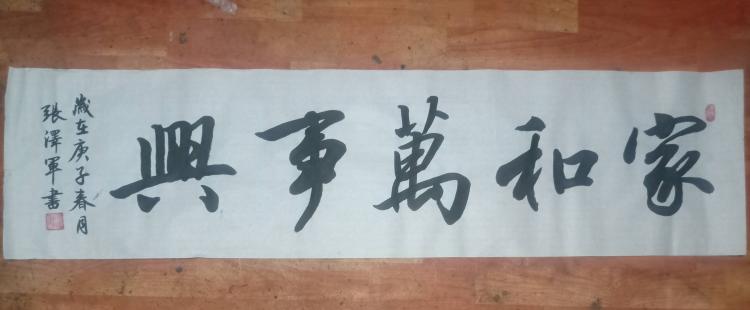 家和萬事興
歲在庚子春月
張澤軍書